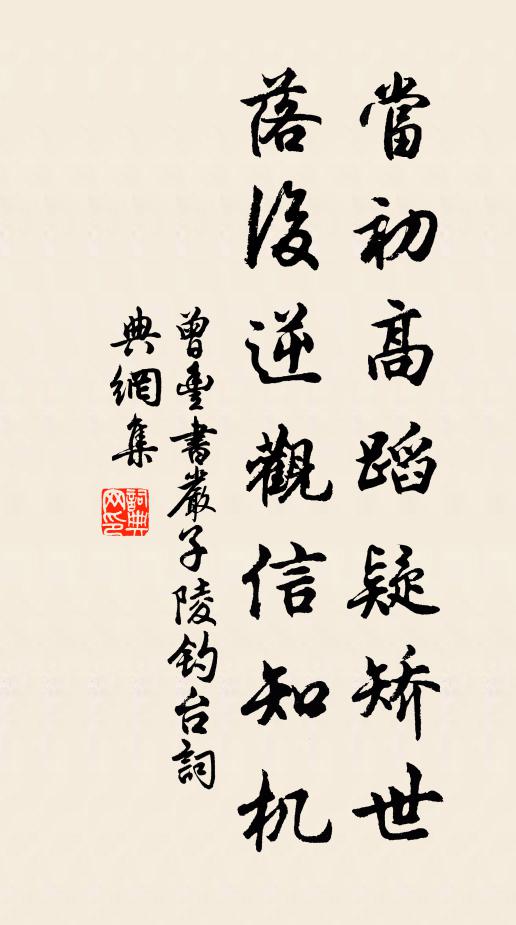 當初高蹈疑矯世
落後逆觀信知机
曾豊書嚴子陵釣台詞
典網集
詞典網印